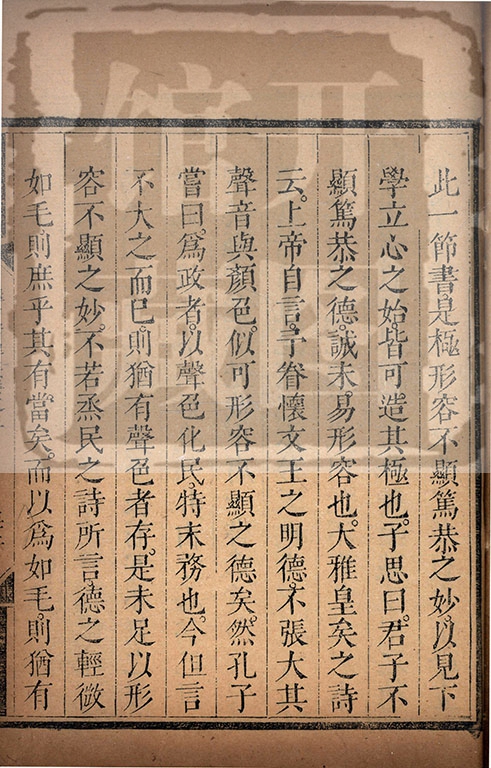 此一節書是極形容不顯篤恭之妙以見下
學立心之始皆可造其極也子思曰君子不
顯篤恭之德誠未易形容也大雅皇矣之詩
云上帝自言予眷懷文王之明德不張大其
聲音與顏色似可形容不顯之德矣然孔子
嘗曰爲政者以聲色化民特末務也今但言
不大之而已則猶有聲色者存是未足以形
容不顯之妙不若烝民之詩所言德之輕微
如毛則庶乎其有當矣而以爲如毛則猶有